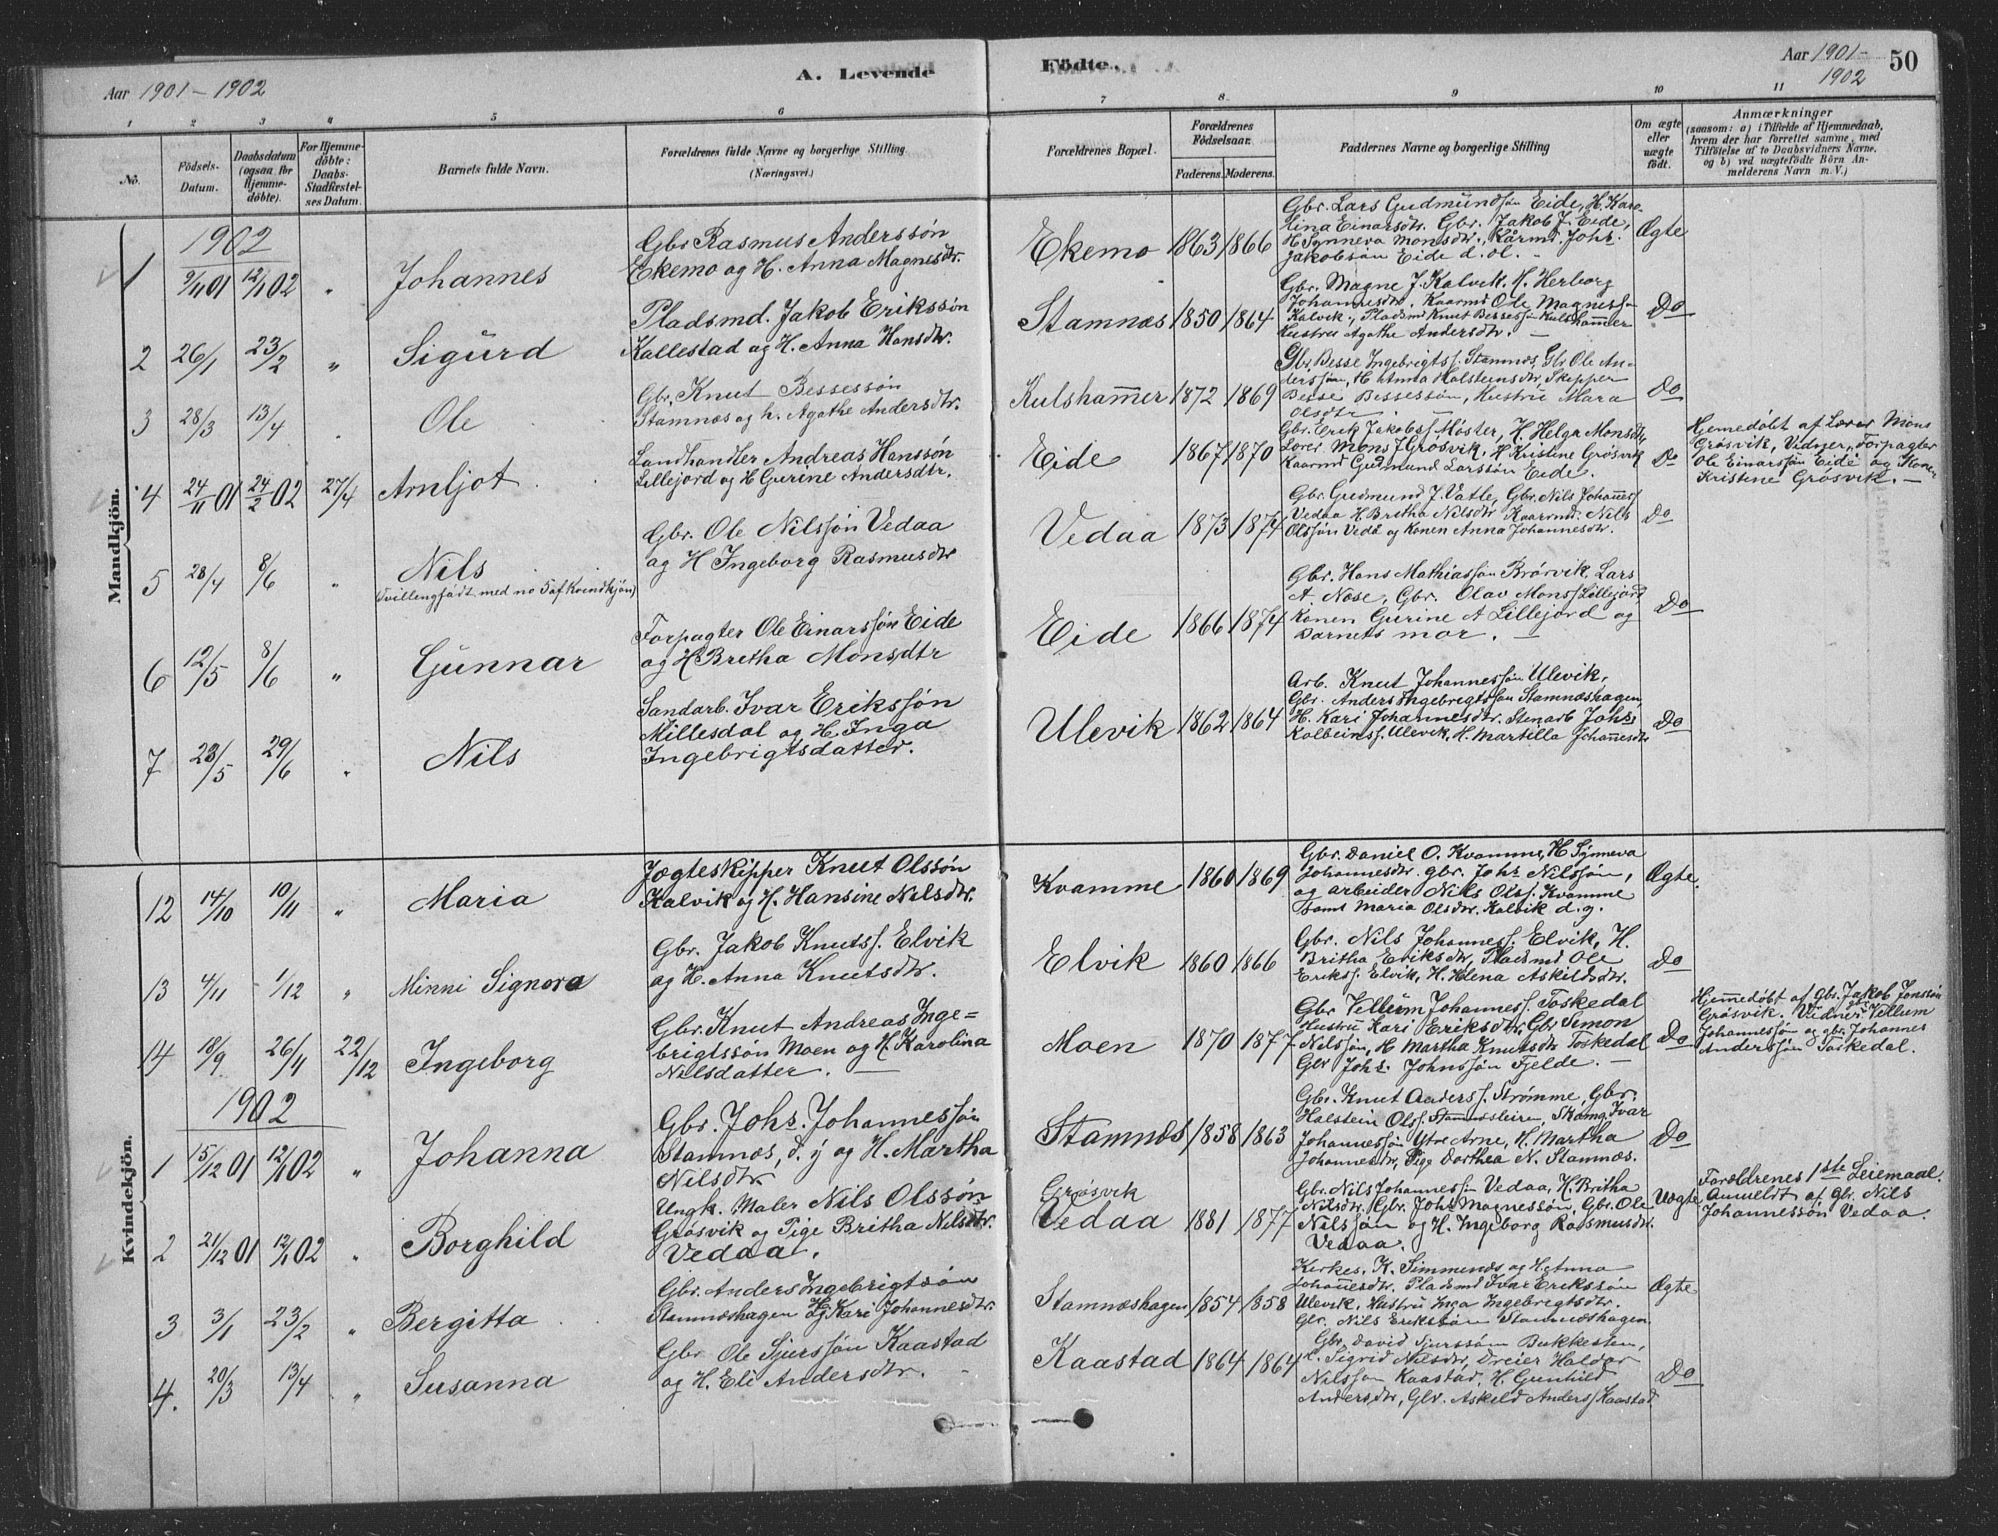 Aar 1901 - 1902
A. Levende
Födte.
Aar 1901 -
1902
50
1
2
3
4
5
6
7
8
9
10
11
No.
Födsels-
Datum.
Daabsdatum
(ogsaa for
Hjemme-
döbte).
For Hjemme-
döbte:
Daabs-
Stadfæstel-
ses Datum.
Barnets fulde Navn.
Forældrenes fulde Navne og borgerlige Stilling
(Næringsvei.)
Forældrenes Bopæl.
Forældrenes
Födselsaar.
Faderens. Moderens.
Faddernes Navne og borgerlige Stilling
Om ægte
eller
uægte
födt.
Anmærkninger
(saasom: a) i Tilfælde af Hjemmedaab,
hvem der har forrettet samme, med
Tilföielse af to Daabsvidners Navne,
og b) ved uægtefödte Börn An-
melderens Navn m. V.)
Mandkjön.
1902
1
9/11 01
12/1 02
"
Johannes
Gbr Rasmus Anderssön
Ekemo og H. Anna Magnesdtr.
Ekemo
1863
1866
Gbr. Lars Gudmundssön Eide, H. Karo-
lina Einarsdtr. Gbr. Jakob J. Eide,
H Synneva Monsdtr., Kårmd. Johs.
Jakobsön Eide d. ol. -
Ægte
2
26/1
23/2
"
Sigurd
Pladsmd. Jakob Erikssön
Kallestad og H. Anna Hansdtr.
Stamnæs
1850
1864
Gbr. Magne J. Kalvik. H. Herborg
Johannesdtr. Kaarmd Ole Magnessön
Kalvik., Pladsmd Knut Bessesön Kulshammer
Hustru Agathe Andersdtr. -
Do
3
28/3
13/4
"
Ole
Gbr. Knut Bessessön
Stamnæs og h. Agathe Andersdtr.
Kulshammer
1872
1869
Gbr. Besse Ingebrigts. Stamnæs, Gbr Ole An-
derssön, H Anna Holsteinsdtr, Skipper
Besse Bessessön, Hustru Mara
Olsdtr
Do
4
24/11 01
24/2 02
27/4
Arnljot
Landhandler Andreas Hanssön
Lillejord og H Gurine Andersdtr.
Eide
1867
1870
Gbr. Erik Jakobss. Möster, H. Helga Monsdtr,
Lærer Mons J Grösvik, H Kristine Grösvik
Kaarmd Gudmund Larssön Eide.
Do
Hjemedöbt af Lærer Mons
Grösvik, Vidner, Forpagter
Ole Einarssön Eide og Konen
Kristine Grösvik. -
5
28/4
8/6
"
Nils
(Tvillingfödt med no 5 af Kvindkjön)
Gbr. Ole Nilssön Vedaa
og H Ingeborg Rasmusdtr
Vedaa
1873
1874
Gbr. Gudmund J. Vatle, Gbr. Nils Johannes.
Vedaa H. Bretha Nilsdtr Kaarmd: Nils
Olssön Vedå og Konen Anna Johannesdtr.
Do
6
12/5
8/6
"
Gunnar
Forpagter Ole Einarssön Eide
og H Bretha Monsdtr
Eide
1866
1874
Gbr. Hans Mathiassön Brörvik, Lars
A. Nese, Gbr. Olav Monss Lillejord,
Konen Gurine A Lillejord og
Barnets mor. -
Do
7
23/5
29/6
"
Nils
Sandarb. Ivar Erikssön
Millesdal og H. Inga
Ingebrigtsdatter.
Ulevik
1862
1864
Arb. Knut Johannessön Ulevik,
Gbr. Anders Ingebrigtsön Stamnæshagen,
H. Kari Johannesdtr. Stenarb Johs
Kolbeinss. Ulevik, H. Martilla Johannesdtr
Do
Kvindekjön.
12
14/10
10/11
"
Maria
Jægteskipper Knut Olssön
Kalvik og H. Hansine Nilsdtr.
Kvamme
1860
1869
Gbr. Daniel O. Kvamme, H Synneva
Johannesdtr. gbr. Johs Nilssön,
og arbeider Nils Olss. Kvamme
samt Maria Olsdtr. Kalvik d. y.
Ægte.
13
4/11
1/12
"
Minni Signora
Gbr. Jakob Knutss. Elvik
og H. Anna Knutsdtr.
Elvik
1860
1866
Gbr. Nils Johanness. Elvik, H.
Britha Eriksdtr, Pladsmd Ole
Erikss. Elvik, H. Helena Askildsdtr.
Do
14
18/9
26/11
22/12
Ingeborg
Gbr. Knut Andreas Inge=
brigtssön Moen og H. Karolina
Nilsdatter. -
Moen
1870
1877
Gbr Villum Johanness. Toskedal
Hustru Kari Eriksdtr, Gbr Simon
Nilssön, H Martha Knutsdtr Toskedal
Gbr Johs. Johnssön Fjelde. -
Do
Hjemmedöbt af Gbr. Jakob Jonssön
Grösvik. Vidner Villum
Johannessön og gbr. Johannes
Anderssön Toskedal.
1902
1
15/12 01
12/1 02
"
Johanna
Gbr. Johs. Johannessön
Stamnæs, d. y og H. Martha
Nilsdtr.
Stamnæs
1858
1863
Gbr. Knut Anderss. Strömme, Gbr.
Halstein Olss. Stamnesleiren, Skomg. Ivar
Johannessön Ytre Arne, H. Martha
Johannesdtr, Pige Dorthea N. Stamnæs.
Do
2
21/12 01
12/1 02
"
Borghild
Ungk. Maler Nils Olssön
Grösvik og Pige Britha Nilsdtr.
Vedaa.
Grösvik
Vedaa
1881
1877
Gbr. Nils Johannessön Vedaa, H. Britha
Nilsdtr. Gbr. Johs Magnessön, Gbr. Ole
Nilssön og H. Ingeborg Rasmusdtr.
Vedaa.
Uægte
Forældrenes 1ste Leiemaal.
Anmeldt af Gbr. Nils
Johannessön Vedaa.
3
3/1
23/2
"
Bergitta
Gbr. Anders Ingebrigtsön
Stamnæshagen og H. Kari Johannesdtr.
Stamnæshagen
1854
1858
Kirkes. K. Simmenæs og H. Anna
Johannesdtr. Pladsmd Ivar Erikssön
Ulevik, Hustru Inga Ingebrigtsdtr.
Gbr. Nils Erikssön Stamnæshagen.
Ægte
4.
20/3
13/4
"
Susanna
Gbr Ole Sjurssön Kaastad
og H. Eli Andersdtr. -
Kaastad
1864
1864
Gbr. David Sjurssön Bukkesten,
H. Sigrid Nilsdtr, Dreier Haldor
Nilssön Kaastad, H. Gunhild
Andersdtr, Gbr. Askild Anderss Kaastad
Do